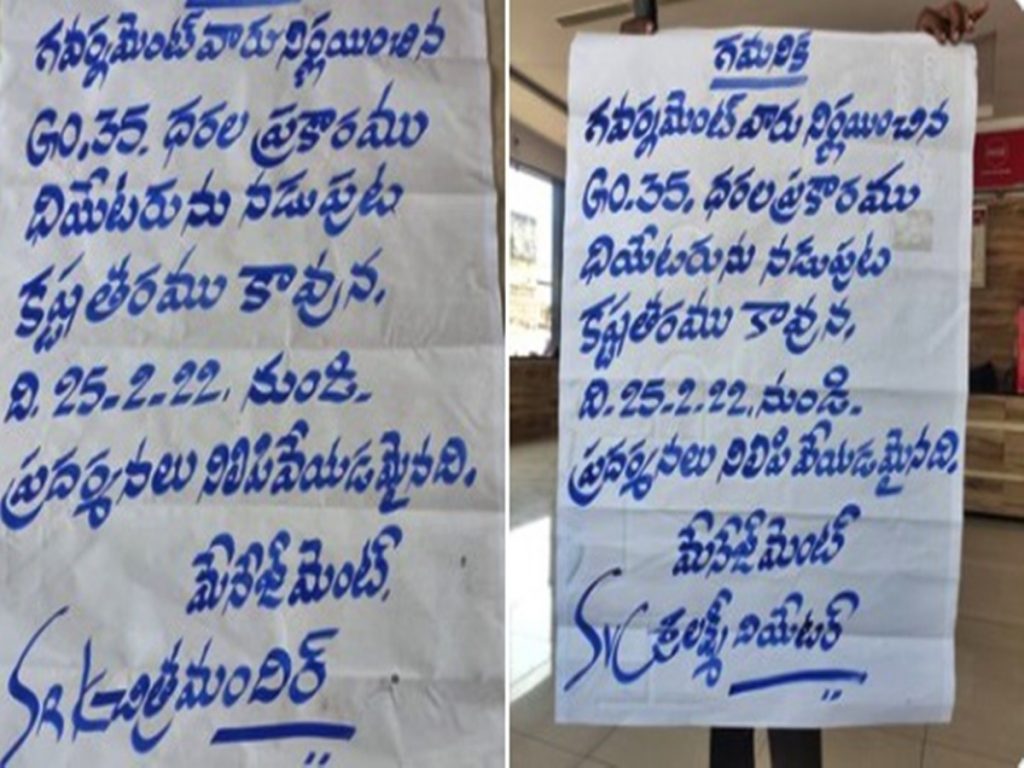 గవర్నమెంట్ వారు నిర్ణయించిన
GO.35. ధరల ప్రకారము
థియేటరును నడుపుట
కష్టతరము కావున.
ది. 25-2-22. నుండి.
ప్రదర్శనలు నిలిపివేయడమైనది.
మేనేజ్ మెంట్.
SRK-చిత్రమందిర్
గమనిక
గవర్నమెంట్ వారు నిర్ణయించిన
GO.35. ధరల ప్రకారము
థియేటరును నడుపుట
కష్టతరము కావున.
ది. 25-2-22. నుండి.
ప్రదర్శనలు నిలిపివేయడమైనది.
మేనేజ్ మెంట్
SVC శ్రీలక్ష్మీ థియేటర్